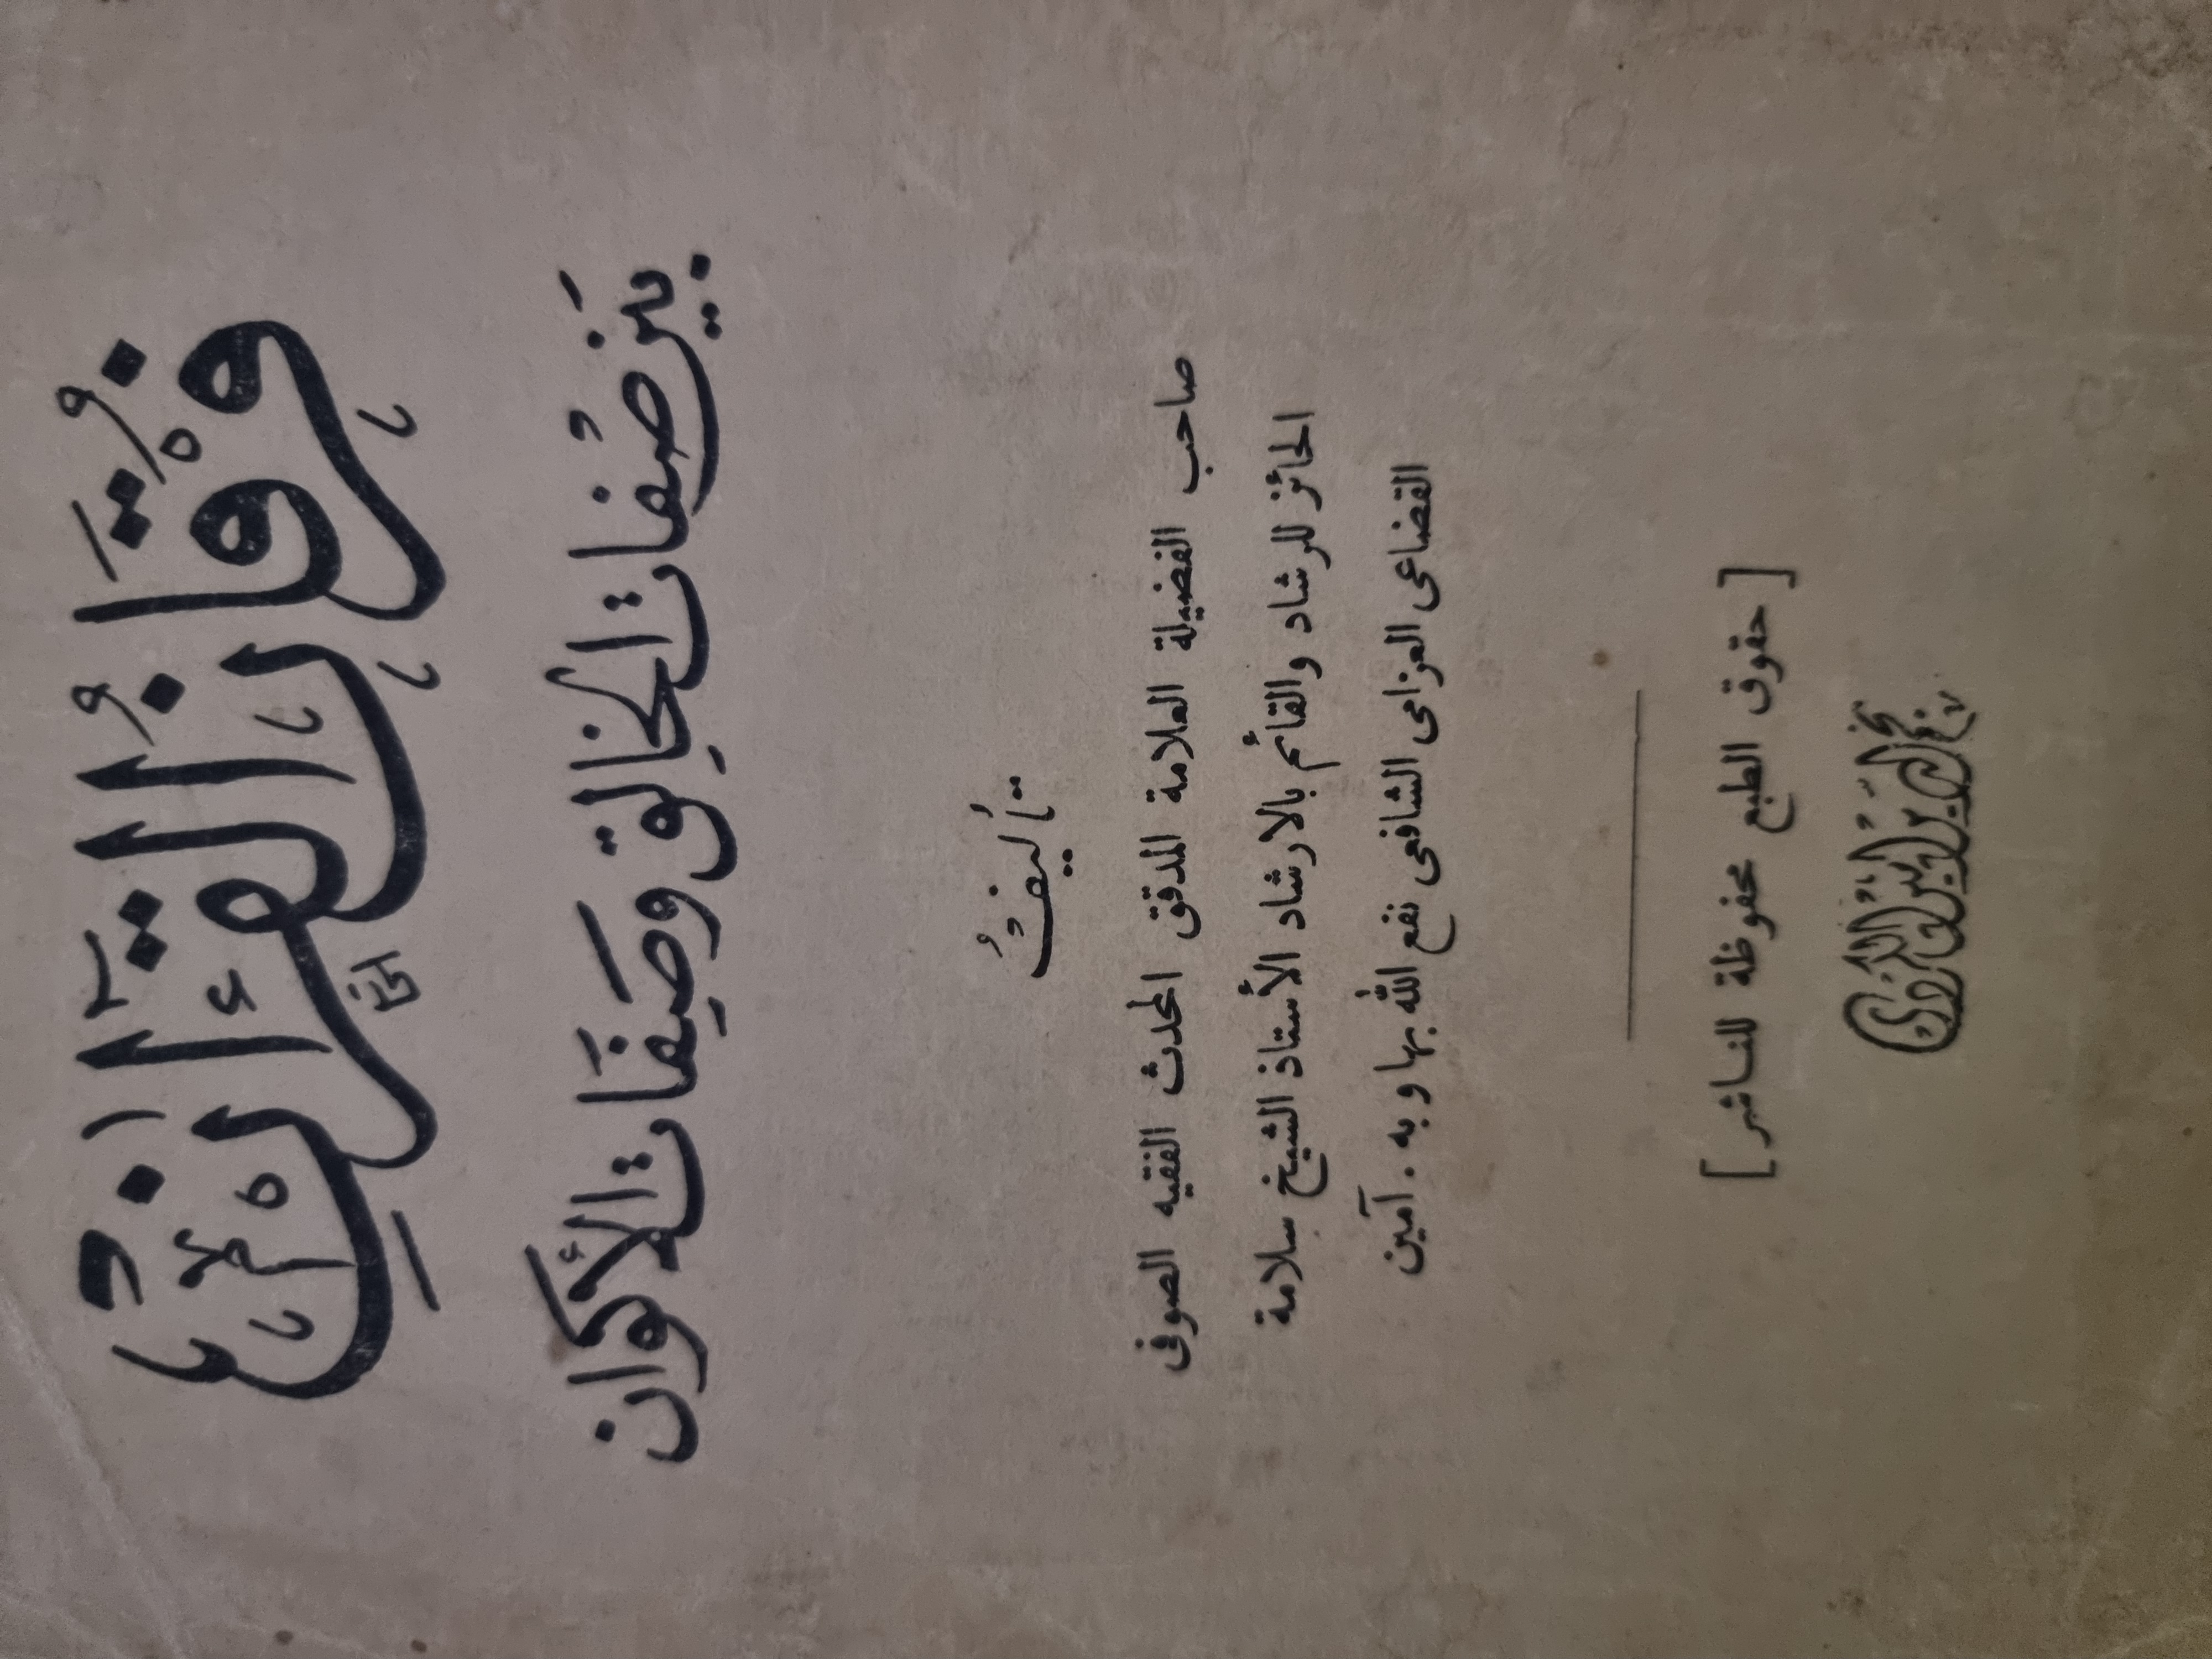 فُرْقَانُ القُرْآنِ
بَيْنَ صِفَاتِ الخَالِقِ وَصِفَاتِ الأَكْوَان
تأليف
صاحب الفضيلة العلامة المدقق المحدث الفقيه الصوفى
الحائز للرشاد والقائم بالارشاد الأستاذ الشيخ سلامة
القضاعى العزامى الشافعى نفع الله بها وبه . آمين
[ حقوق الطبع محفوظة للناشر ]